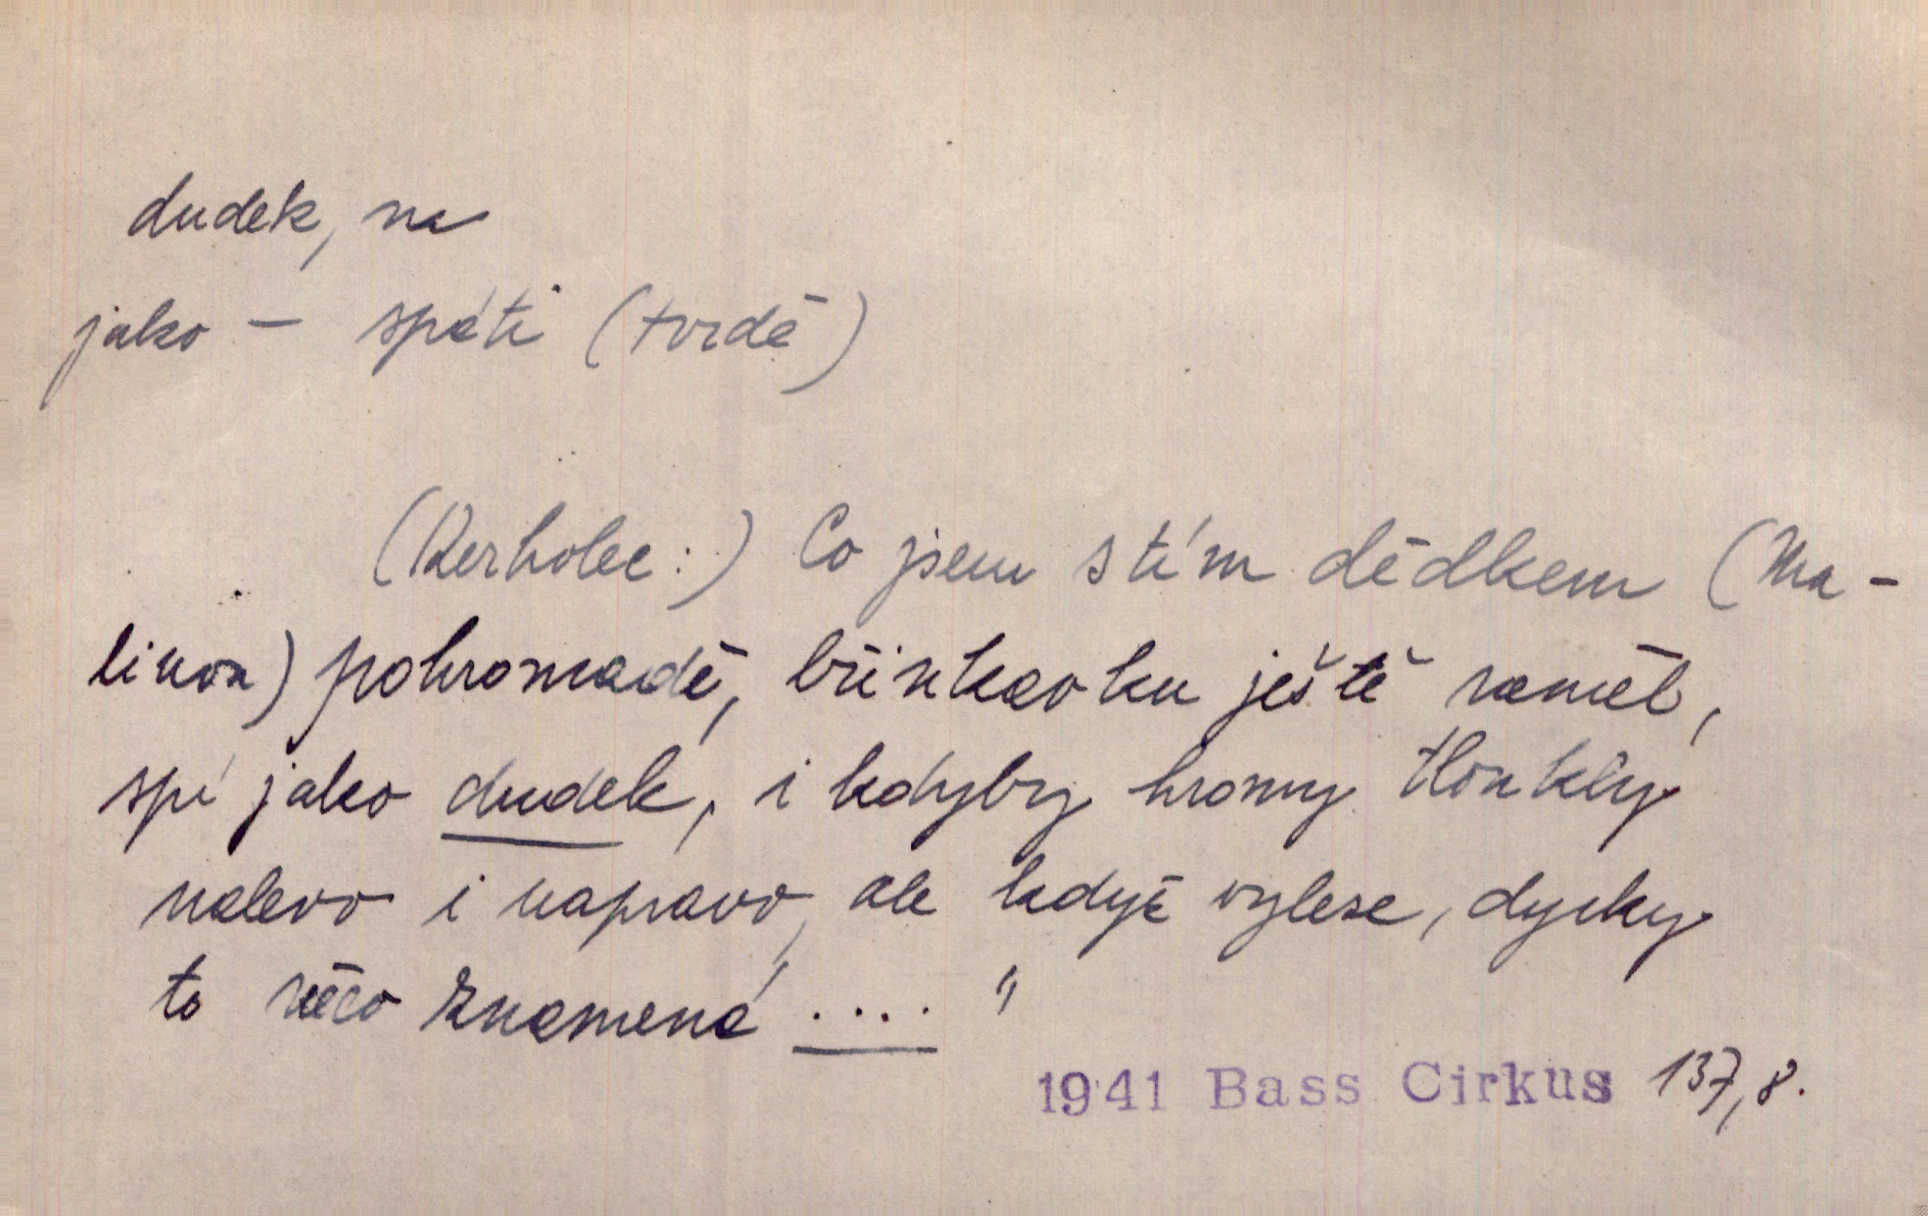 dudek, na
jako — spáti (tvrdě)
(Kerholec:) Co jsem s tím dědkem (Ma-
linou) pohromadě, břinkavku ještě neměl,
spí jako dudek, i kdyby hromy tloukly
nalevo i napravo, ale když vyleze, dycky
to něco znamená .... "
1941 Bass Cirkus 137,8.